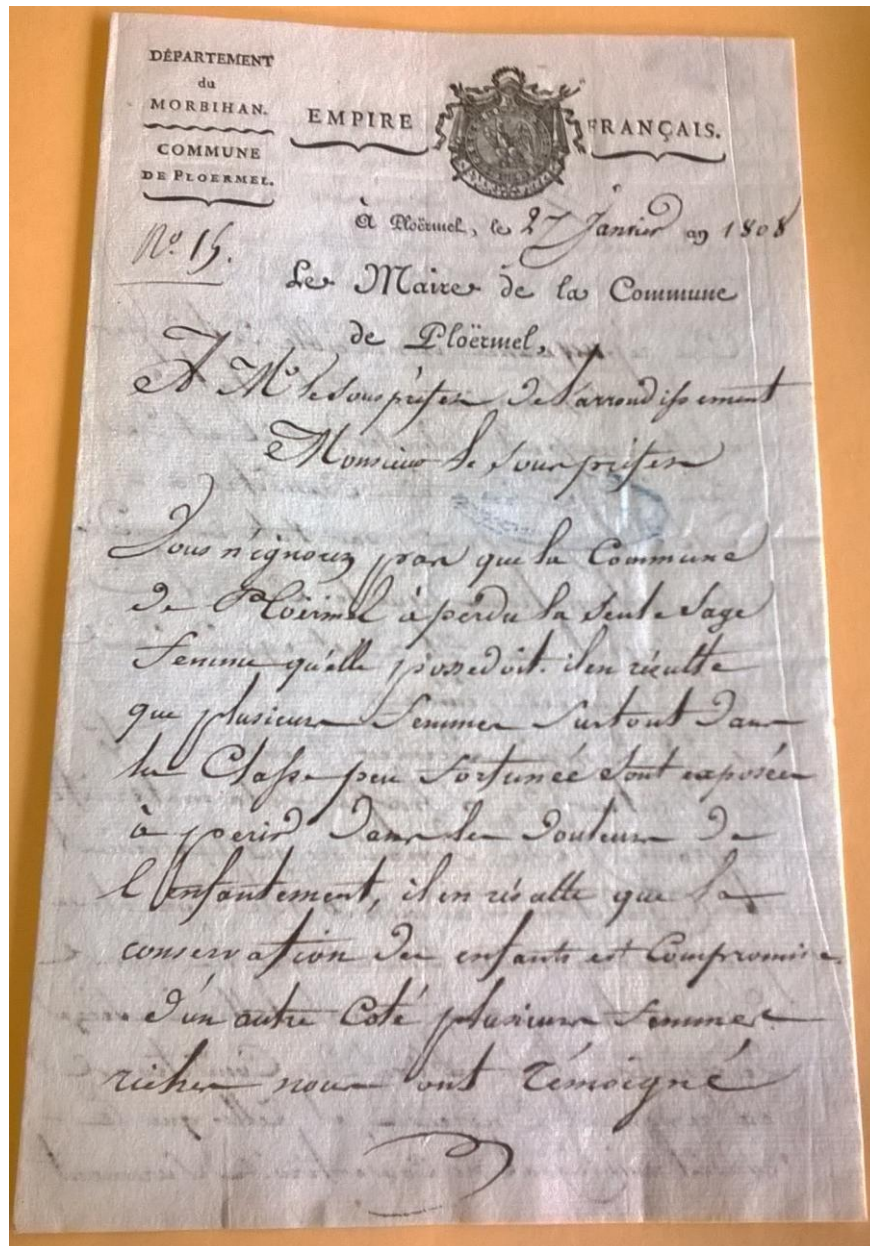 DÉPARTEMENT
du
MORBIHAN.
COMMUNE
DE PLOERMEL.
EMPIRE FRANÇAIS.
N.º 15.
à Ploërmel, le 27 Janvier an 1808
Le Maire de la Commune
de Ploërmel,
A Mr le sous préfet de l'arrondissement
Monsieur le sous préfet
Vous n'ignorez pas que la Commune
de Ploërmel à perdu la seule sage
femme qu'elle possedoit. il en résulte
que plusieurs femmes surtout dans
la Classe peu fortunée sont exposées
à perir dans les douleurs de
l'enfantement, il en résulte que la
conservation des enfants est Compromise
d'un autre Coté plusieurs femmes
riches nous ont témoigné